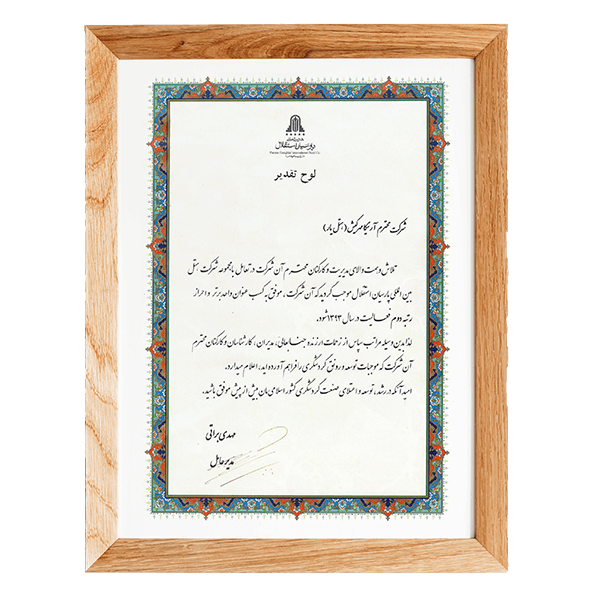 هتل بین المللی
پارسیان استقلال
Parsian Esteghlal International Hotel Co.
لوح تقدیر
شرکت محترم آریکا مهر کیش (هتل یار)
تلاش و همت والای مدیریت و کارکنان محترم آن شرکت در تعامل با مجموعه شرکت هتل
بین المللی پارسیان استقلال موجب گردید که آن شرکت ، موفق به کسب عنوان واحد برتر و احراز
رتبه دوم فعالیت در سال ۱۳۹۳ شود.
لذا بدین وسیله مراتب سپاس از زحمات ارزنده جنابعالی، مدیران ، کارشناسان و کارکنان محترم
آن شرکت که موجبات توسعه و رونق گردشگری را فراهم آورده اید، اعلام میدارد.
امید آنکه در رشد، توسعه و اعتلای صنعت گردشگری کشور اسلامی مان بیش از پیش موفق باشید.
مهدی براتی
مدیر عامل